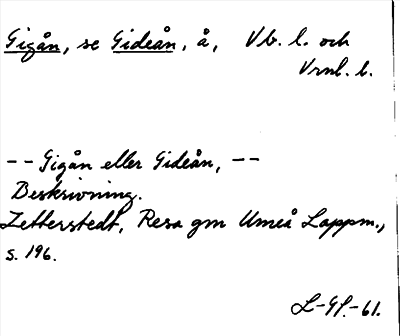 Gigån, se Gideån, å, Vb. l. och
Vrnl. l.
-- Gigån eller Gideån, --
Beskrivning.
Zetterstedt, Resa gm Umeå Lappm.,
s. 196.
L-Gf.-61.